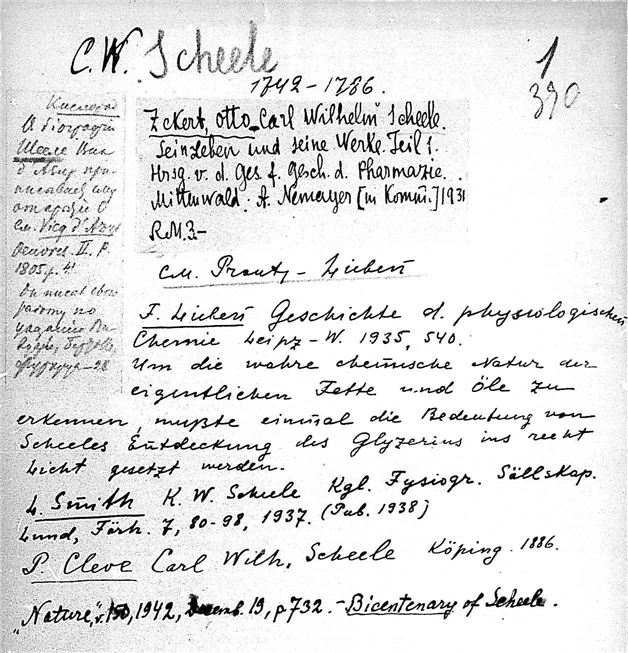 C. W. Scheele
1
390
1742-1786.
Кислород
О биографии
Шееле Вик
д'Азир при-
Vicq d'Azyr
Oeuvres. II. P.
1805
Он писал свою
работу по
Zekert, Otto Carl Wilhelm Scheele.
Sein Leben und seine Werke. Teil 1.
Hrsg. v. d. Ges. f. Gesch. d. Pharmazie.
Mittenwald: A. Nemayer [in Komm.] 1931
R.M. 3-
см. Lieben
F. Lieben Geschichte d. physiologischen
Chemie Leipz-W. 1935, 540.
Um die wahre chemische Natur der
eigentlichen Fette und Öle zu
erkennen, mußte einmal die Bedeutung von
Scheeles Entdeckung des Glyzerins ins recht
Licht gesetzt werden.
L. Smith K. W. Scheele Kgl. Fysiogr. Sällskap.
Lund, Förh. 7, 80-98, 1937. (Pub. 1938)
P. Cleve Carl Wilh. Scheele Köping. 1886.
„Nature", v. 150, 1942, Decemb. 19, p 732. - Bicentenary of Scheele.